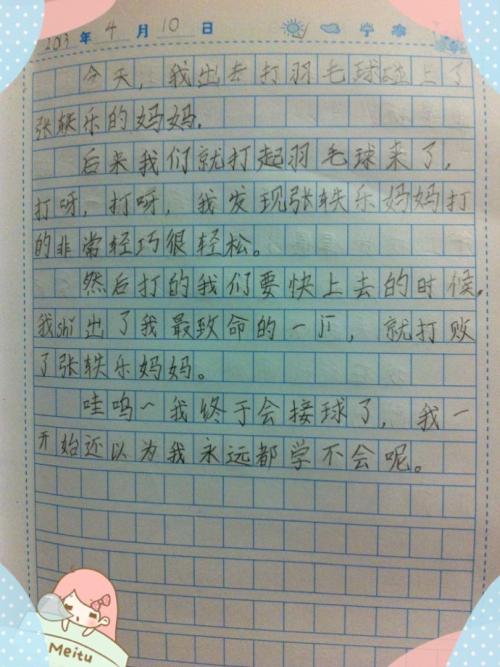 203年 4月 10日
今天，我出去打羽毛球碰上了
张轶乐的妈妈.
后来我们就打起羽毛球来了，
打呀，打呀，我发现张轶乐妈妈打
的非常轻巧很轻松。
然后打的我们要快上去的时候，
我shǐ出了我最致命的一jī，就打败
了张轶乐妈妈。
哇呜~我终于会接球了，我一
开始还以为我永远都学不会呢。
Meitu